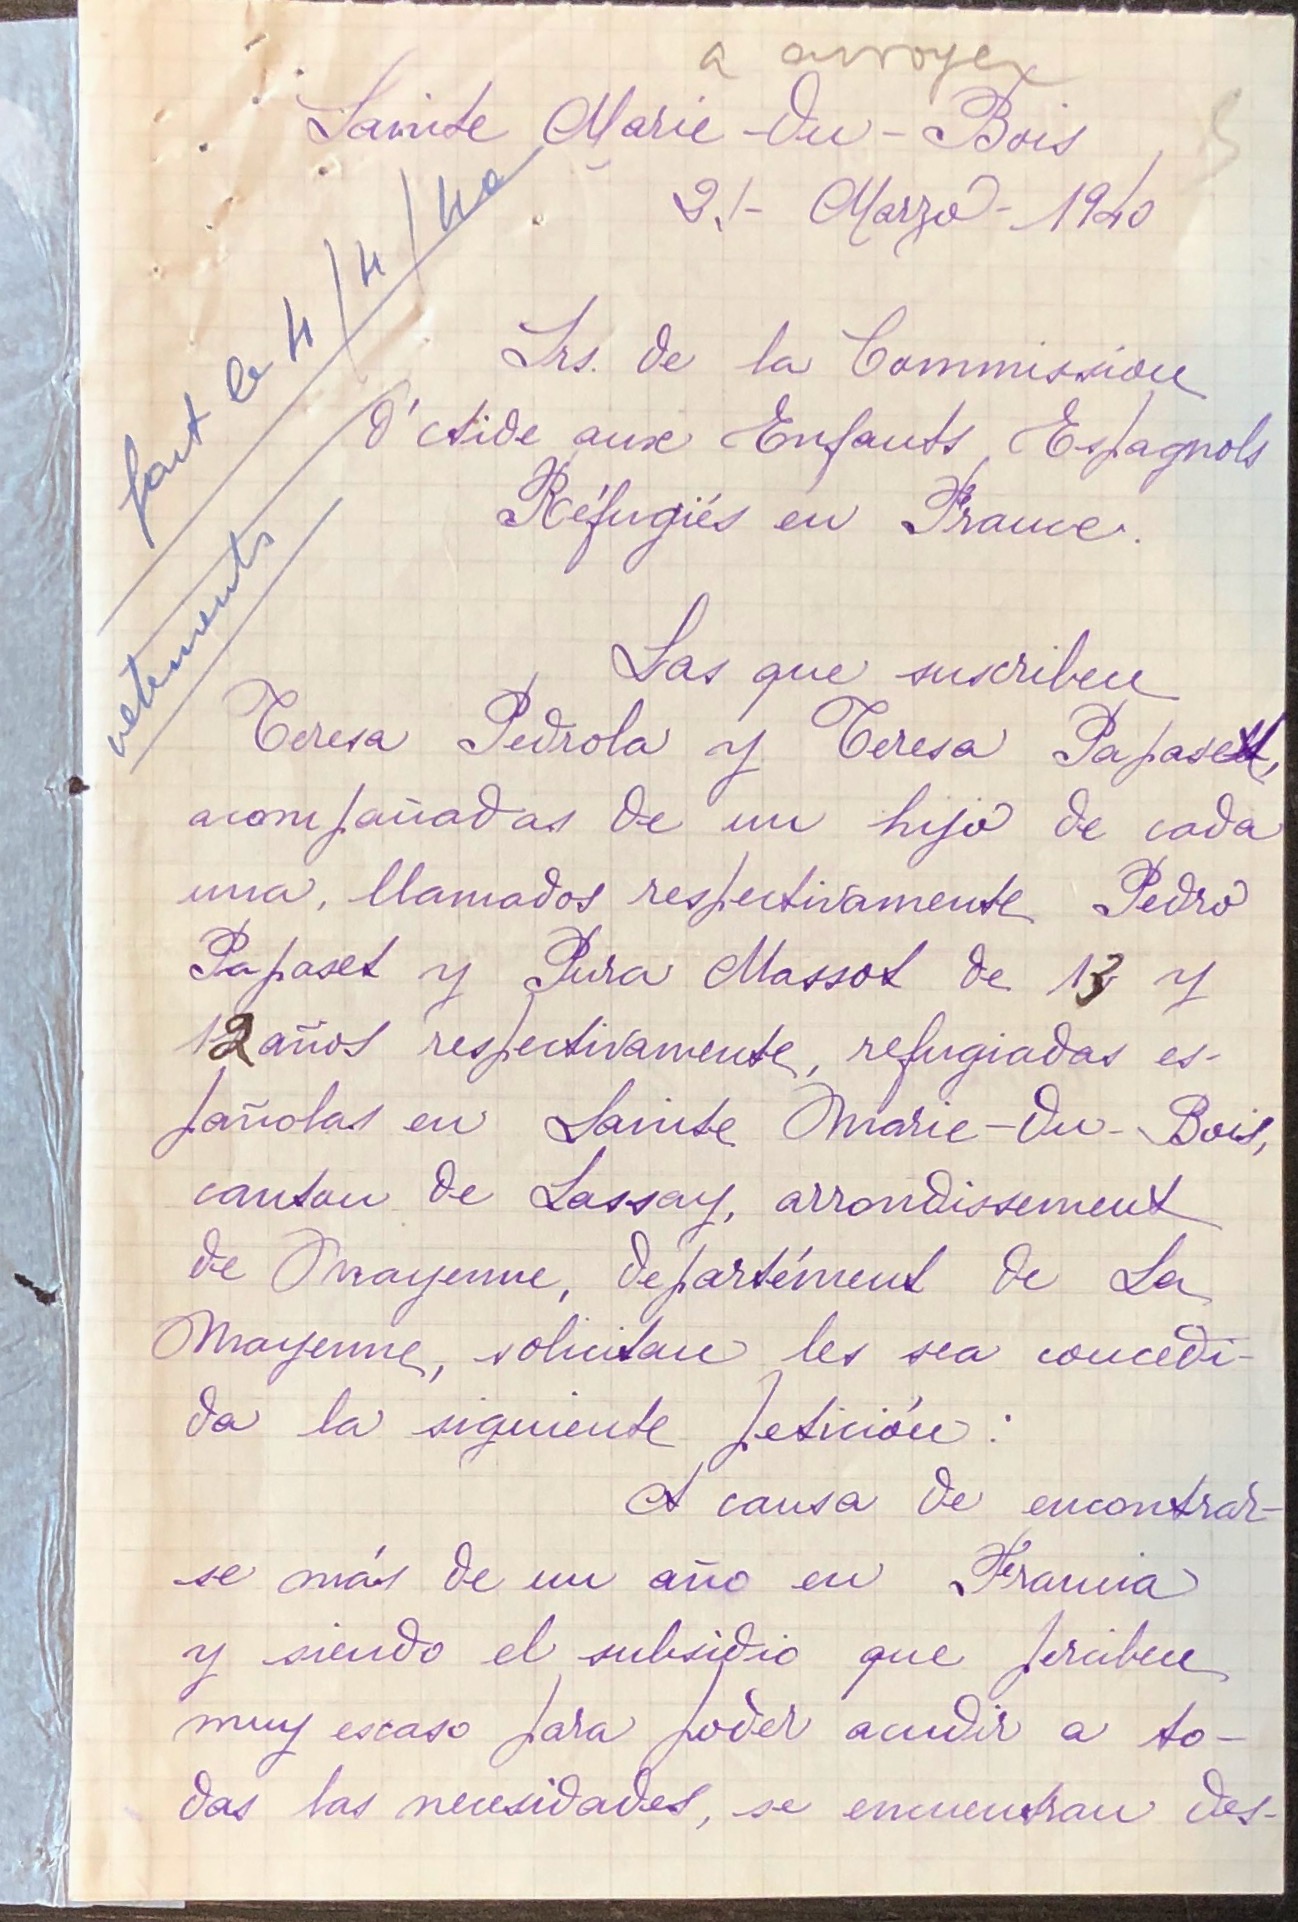 a envoyer
Sainte Marie-du-Bois
21- Marzo - 1940
fait le 4/4/40
vetements
Srs. de la Commission
d'Aide aux Enfants Espagnols
Réfugiés en France.
Las que suscriben
Teresa Pedrola y Teresa Papaset,
acompañadas de un hijo de cada
una, llamados respectivamente Pedro
Papaset y Pura Massot de 13 y
12 años respectivamente, refugiadas es-
pañolas en Sainte Marie-du-Bois,
canton de Lassay, arrondissement
de Mayenne, departément de La
Mayenne, solicitan les sea concedi-
da la siguiente petición:
A causa de encontrar-
se más de un año en Francia
y siendo el subsidio que perciben
muy escaso para poder acudir a to-
das las necesidades, se encuentran des-